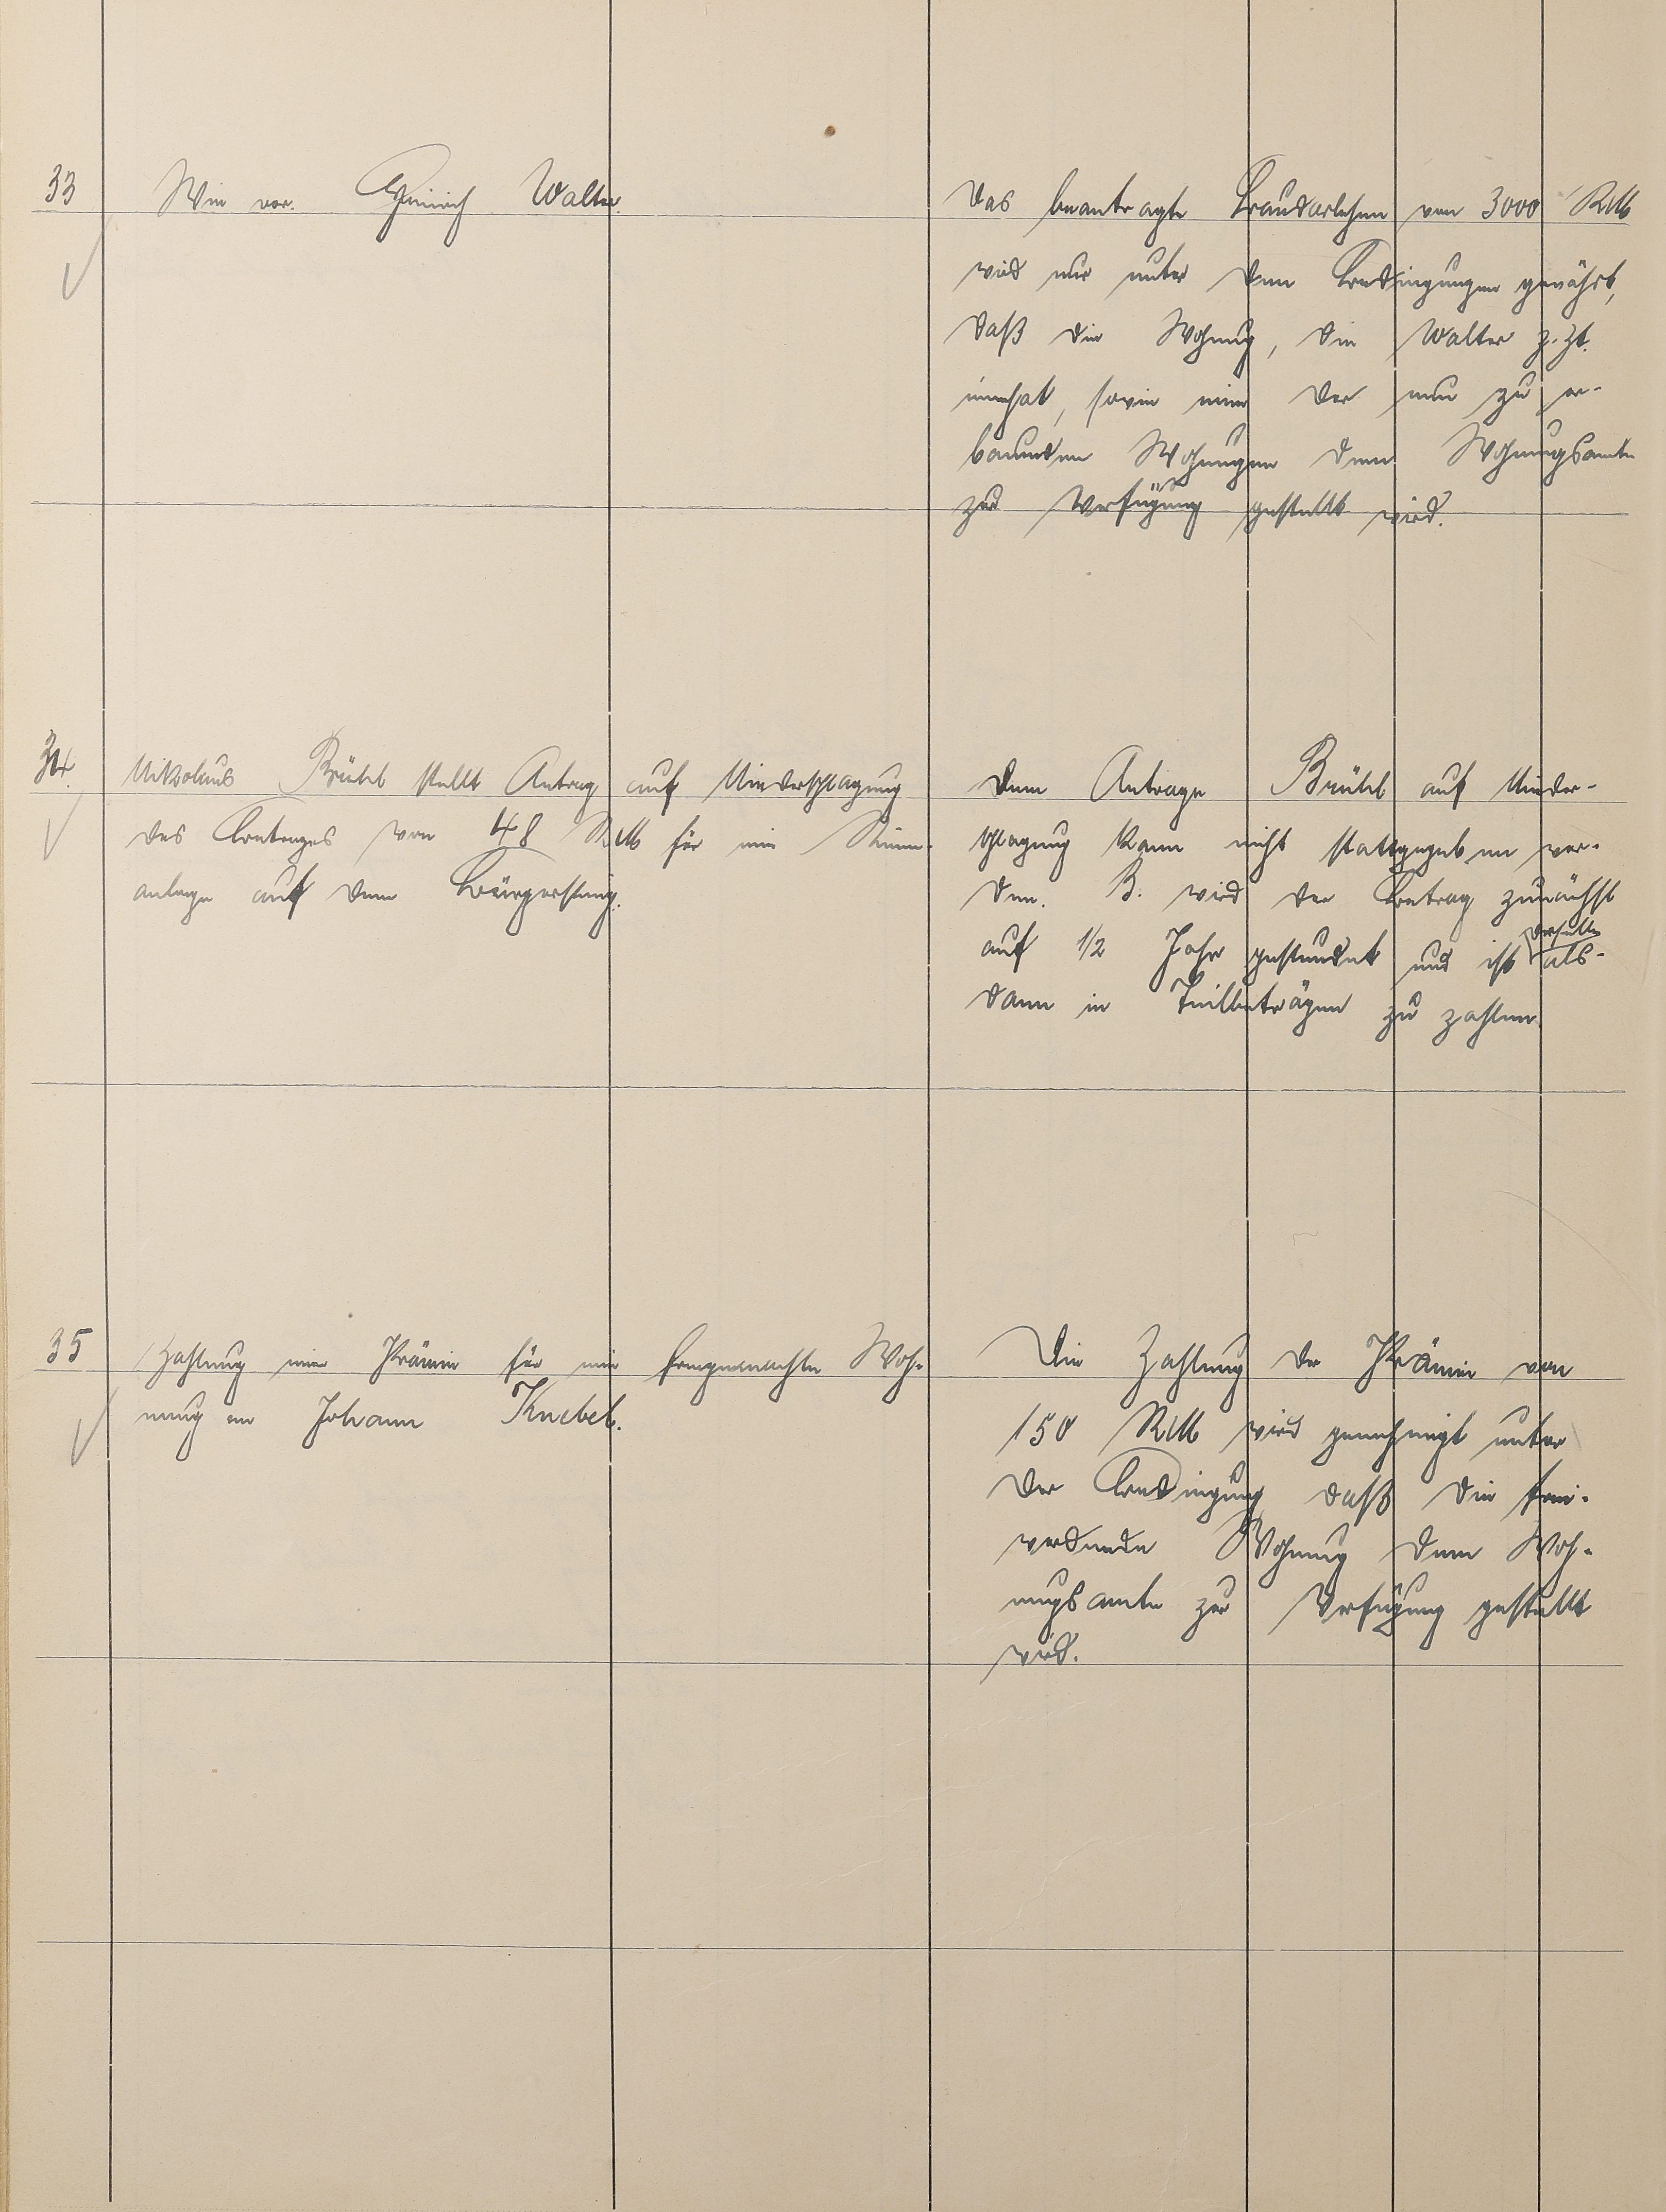 33
Wie vor. Heinrich Walter.
Das beantragte Baudarlehen von 3000 RM
wird nur unter den Bedingungen gewährt,
daß die Wohnung, die Walter z. Zt.
innehat, sowie eine der neu zu er-
bauenden Wohnungen dem Wohnungsamte
zur Verfügung gestellt wird.
34.
Nikolaus Brühl stellt Antrag auf Niederschlagung
des Betrages von 48 RM für eine Rinnen-
anlage auf dem Bürgersteig.
Dem Antrage Brühl auf Nieder-
schlagung kann nicht stattgegeben wer-
den. B. wird der Betrag zunächst
auf 1/2 Jahr gestundet und ist derselbe als-
dann in Teilbeträgen zu zahlen.
35
Zahlung einer Prämie für eine freigemachte Woh-
nung an Johann Knebel.
Die Zahlung der Prämie von
150 RM wird genehmigt unter
der Bedingung daß die frei-
werdende Wohnung dem Woh-
nungsamte zur Verfügung gestellt
wird.